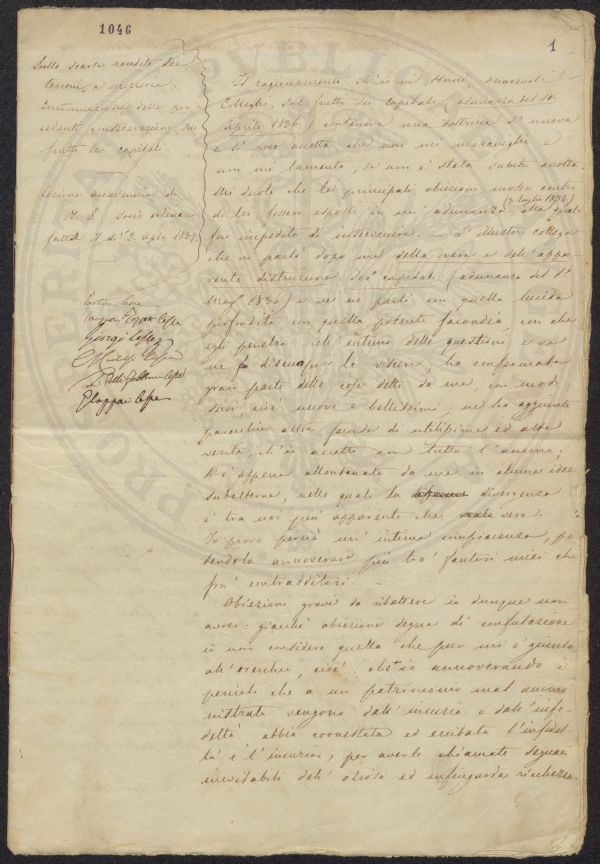 1046
1
Sulle scarse rendite dei
terreni, a miseria
Continuazione delle pre
cedenti considerazioni sui
frutti dei capitali.
Lezione accademica di
socio ordinario
fatta il dì 2 Aprile 1837.
Il ragionamento ch'io vi tenni, onorevoli
Colleghi, sul frutto dei capitali (adunanza del 10
Aprile 1836) conteneva una dottrina sì nuova
e sì poco accetta, che non mi maraviglio e
non mi lamento, se non è stata subito
Mi duole che le principali obiezioni mosse contro
di lei fossero esposte in un'adunanza (3 luglio 1836) alla quale
fui impedito di intervenire. – L'illustre collega
che vi parlò dopo me della vera e dell'appa-
rente distruzione dei capitali (adunanza del 1º
Mag. 1836) e ve ne parlò con quella lucida
profondità, con quella potente facondia, con che
egli penetra nell'intimo delle questioni e va
le viscere, ha confermata
gran parte delle cose dette da me, con modi
suoi, cioè nuovi e bellissimi, ne ha aggiunte
parecchie altre feconde di utilissime ed alte
verità, ch'io accetto con tutto l'animo.
Si è appena allontanato da me in alcune idee
subalterne, nelle quali la divergenza
è tra noi più apparente che vera.
Io provo perciò un'intima compiacenza, po
tendolo annoverare più tra' fautori miei che
fra' contradditori. –
Obiezioni gravi da ribattere io dunque non
avrei: giacchè obiezione degna di confutazione
io non considero quella che pur mi è giunta
all'orecchio, cioè: ch'io annoverando i
pericoli che a un patrimonio mal ammi
nistrato vengono dall'incuria e dall'infe
deltà abbia coonestata ed eccitata l'infedel
tà e l'incuria, per averle chiamate seguaci
inevitabili dell'oziosa ed infingarda ricchezza.